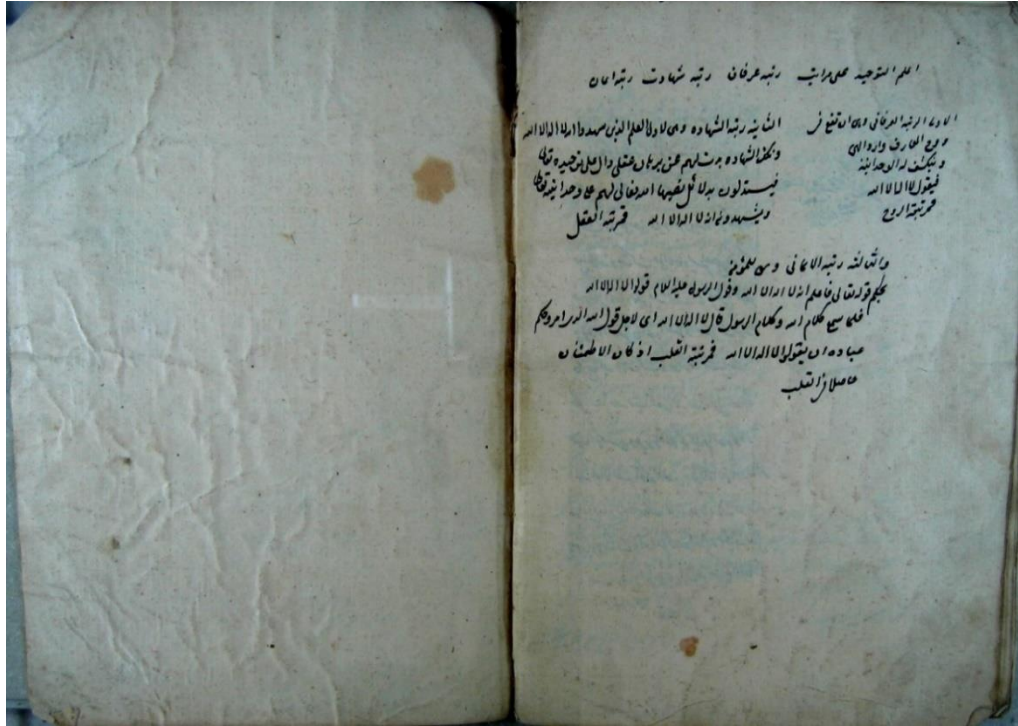 اعلم التوحيد على مراتب رتبه عرفان رتبه شهادت رتبه ايمان
الاولى الرتبه العرفانى وهى ان تقع فى
روح العارف
وينكشف له الوحدانية
فيقول لا اله الا الله
فمرتبة الروح
الثانيه رتبه الشهاده وهى لاولى العلم الذين شهدوا انه لا اله الا الله
الشهاده لهم عن برهان عقلى دال على توحيده تعالى
فيستدلون بدلائل نصبها الله تعالى لهم على وحدانيته تعالى
ويشهدون انه لا اله الا الله فمرتبة العقل
والثالثه رتبه الايمانى وهى للمؤمن
بحكم قوله تعالى فاعلم انه لا اله الا الله وقول الرسول عليه السلام قولوا لا اله الا الله
فلما سمع كلام الله وكلام الرسول قال لا اله الا الله اى لاجل قول الله الذى امر
عباده ان يقولوا لا اله الا الله فمرتبة القلب اذ كان الاطمئنان
حاصلا فى القلب